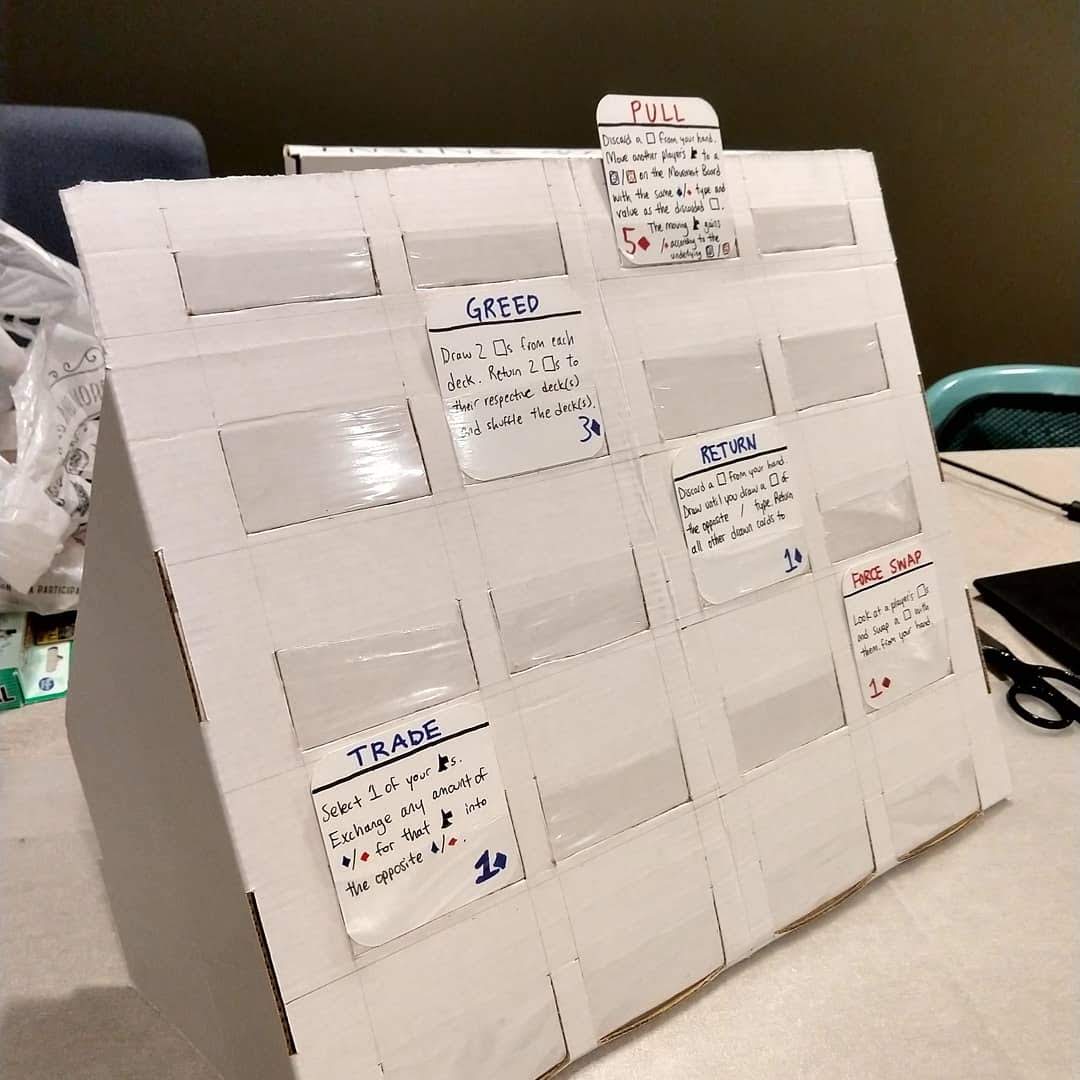 PULL
Discard a □ from your hand.
Move another player's ♞ to a
▣/▣ on the Movement Board
with the same ♦/♦ type and
value as the discarded □.
The moving ♞ gains
/♦ according to the
underlying ▣/▣
5♦
GREED
Draw 2 □s from each
deck. Return 2 □s to
their respective deck(s)
and shuffle the deck(s).
3♦
RETURN
Discard a □ from your hand.
Draw until you draw a □ of
the opposite / type. Return
all other drawn cards to
1♦
FORCE SWAP
Look at a player's □s
and swap a □ with
them from your hand
1♦
TRADE
Select 1 of your ♞s.
Exchange any amount of
♦/♦ for that ♞ into
the opposite ♦/♦.
1♦